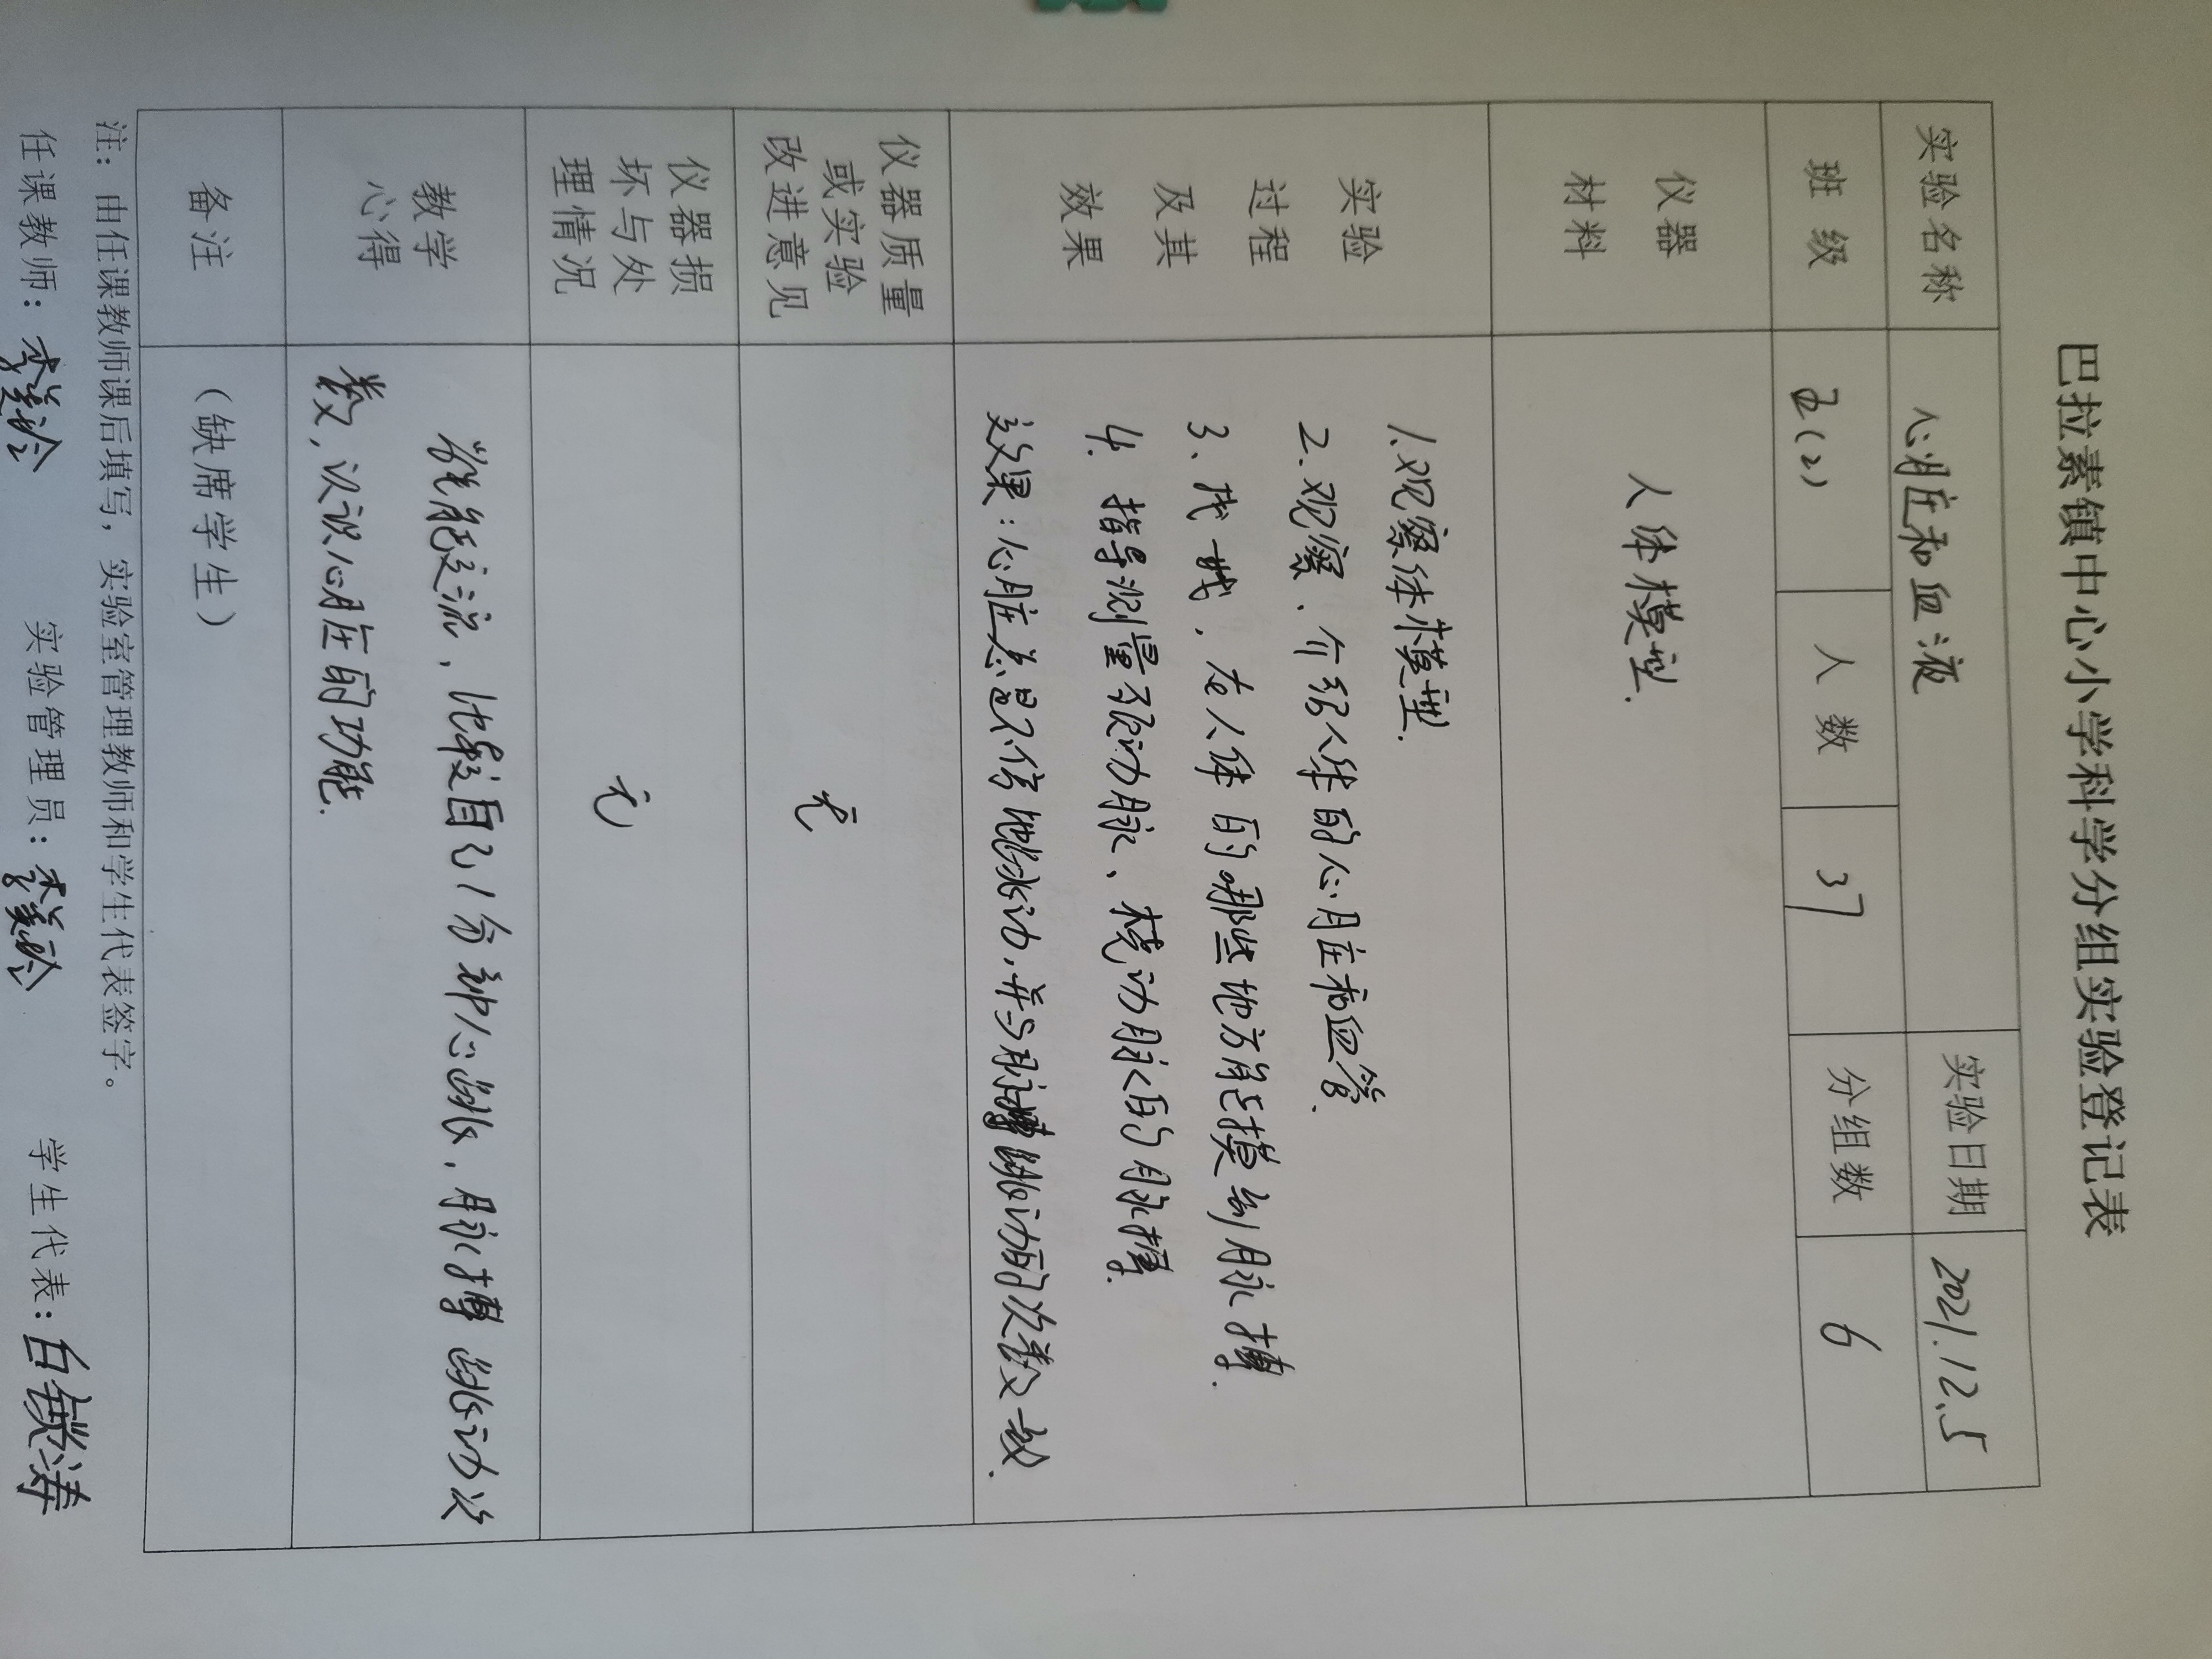 巴拉素镇中心小学科学分组实验登记表
实验名称 心脏和血液 实验日期 2021.12.5
班 级 五(2) 人 数 37 分组数 6
仪器
材料
人体模型.
实验
过程
及其
效果
1.观察体模型.
2.观察、介绍人体的心脏和血管.
3.找一找,在人体的哪些地方能摸到脉搏.
4.指导测量颈动脉、桡动脉的脉搏.
效果:心脏总是不停地跳动,并与脉搏跳动的次数一致.
仪器质量
或实验
改进意见
无
仪器损
坏与处
理情况
无
教学
心得
交流,比较自己1分钟心跳,脉搏跳动次
数,认识心脏的功能.
备注
(缺席学生)
注:由任课教师课后填写,实验室管理教师和学生代表签字。
任课教师: 实验管理员: 学生代表: